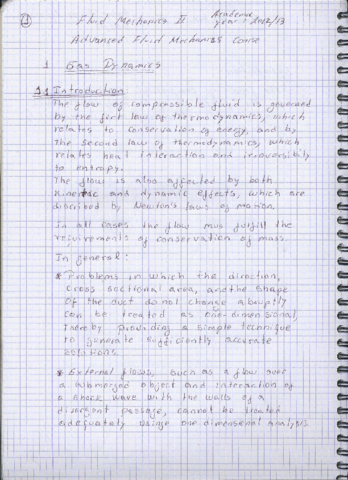 1
Fluid Mechanics II
Academic
year: 2012/13
Advanced Fluid Mechanics Course
1 Gas Dynamics
1.1 Introduction:
The flow of compressible fluid is governed
by the first law of thermodynamics, which
relates to conservation of energy, and by
the second law of thermodynamics, which
relates heat interaction and irreversibility
to entropy.
The flow is also affected by both
Kinetic and dynamic effects, which are
discribed by Newton's laws of motion.
In all cases the flow mus fulfill the
requirements of conservation of mass.
In general:
* Problems in which the direction,
cross sectional area, and the shape
of the duct do not change abruptly
can be treated as one-dimensional,
thereby providing a simple technique
to generate sufficiently accurate
solutions.
* External flows, such as a flow over
a submerged object and interaction of
a shock wave with the walls of a
divergent passage, cannot be treated
adequately using one dimensional analysis